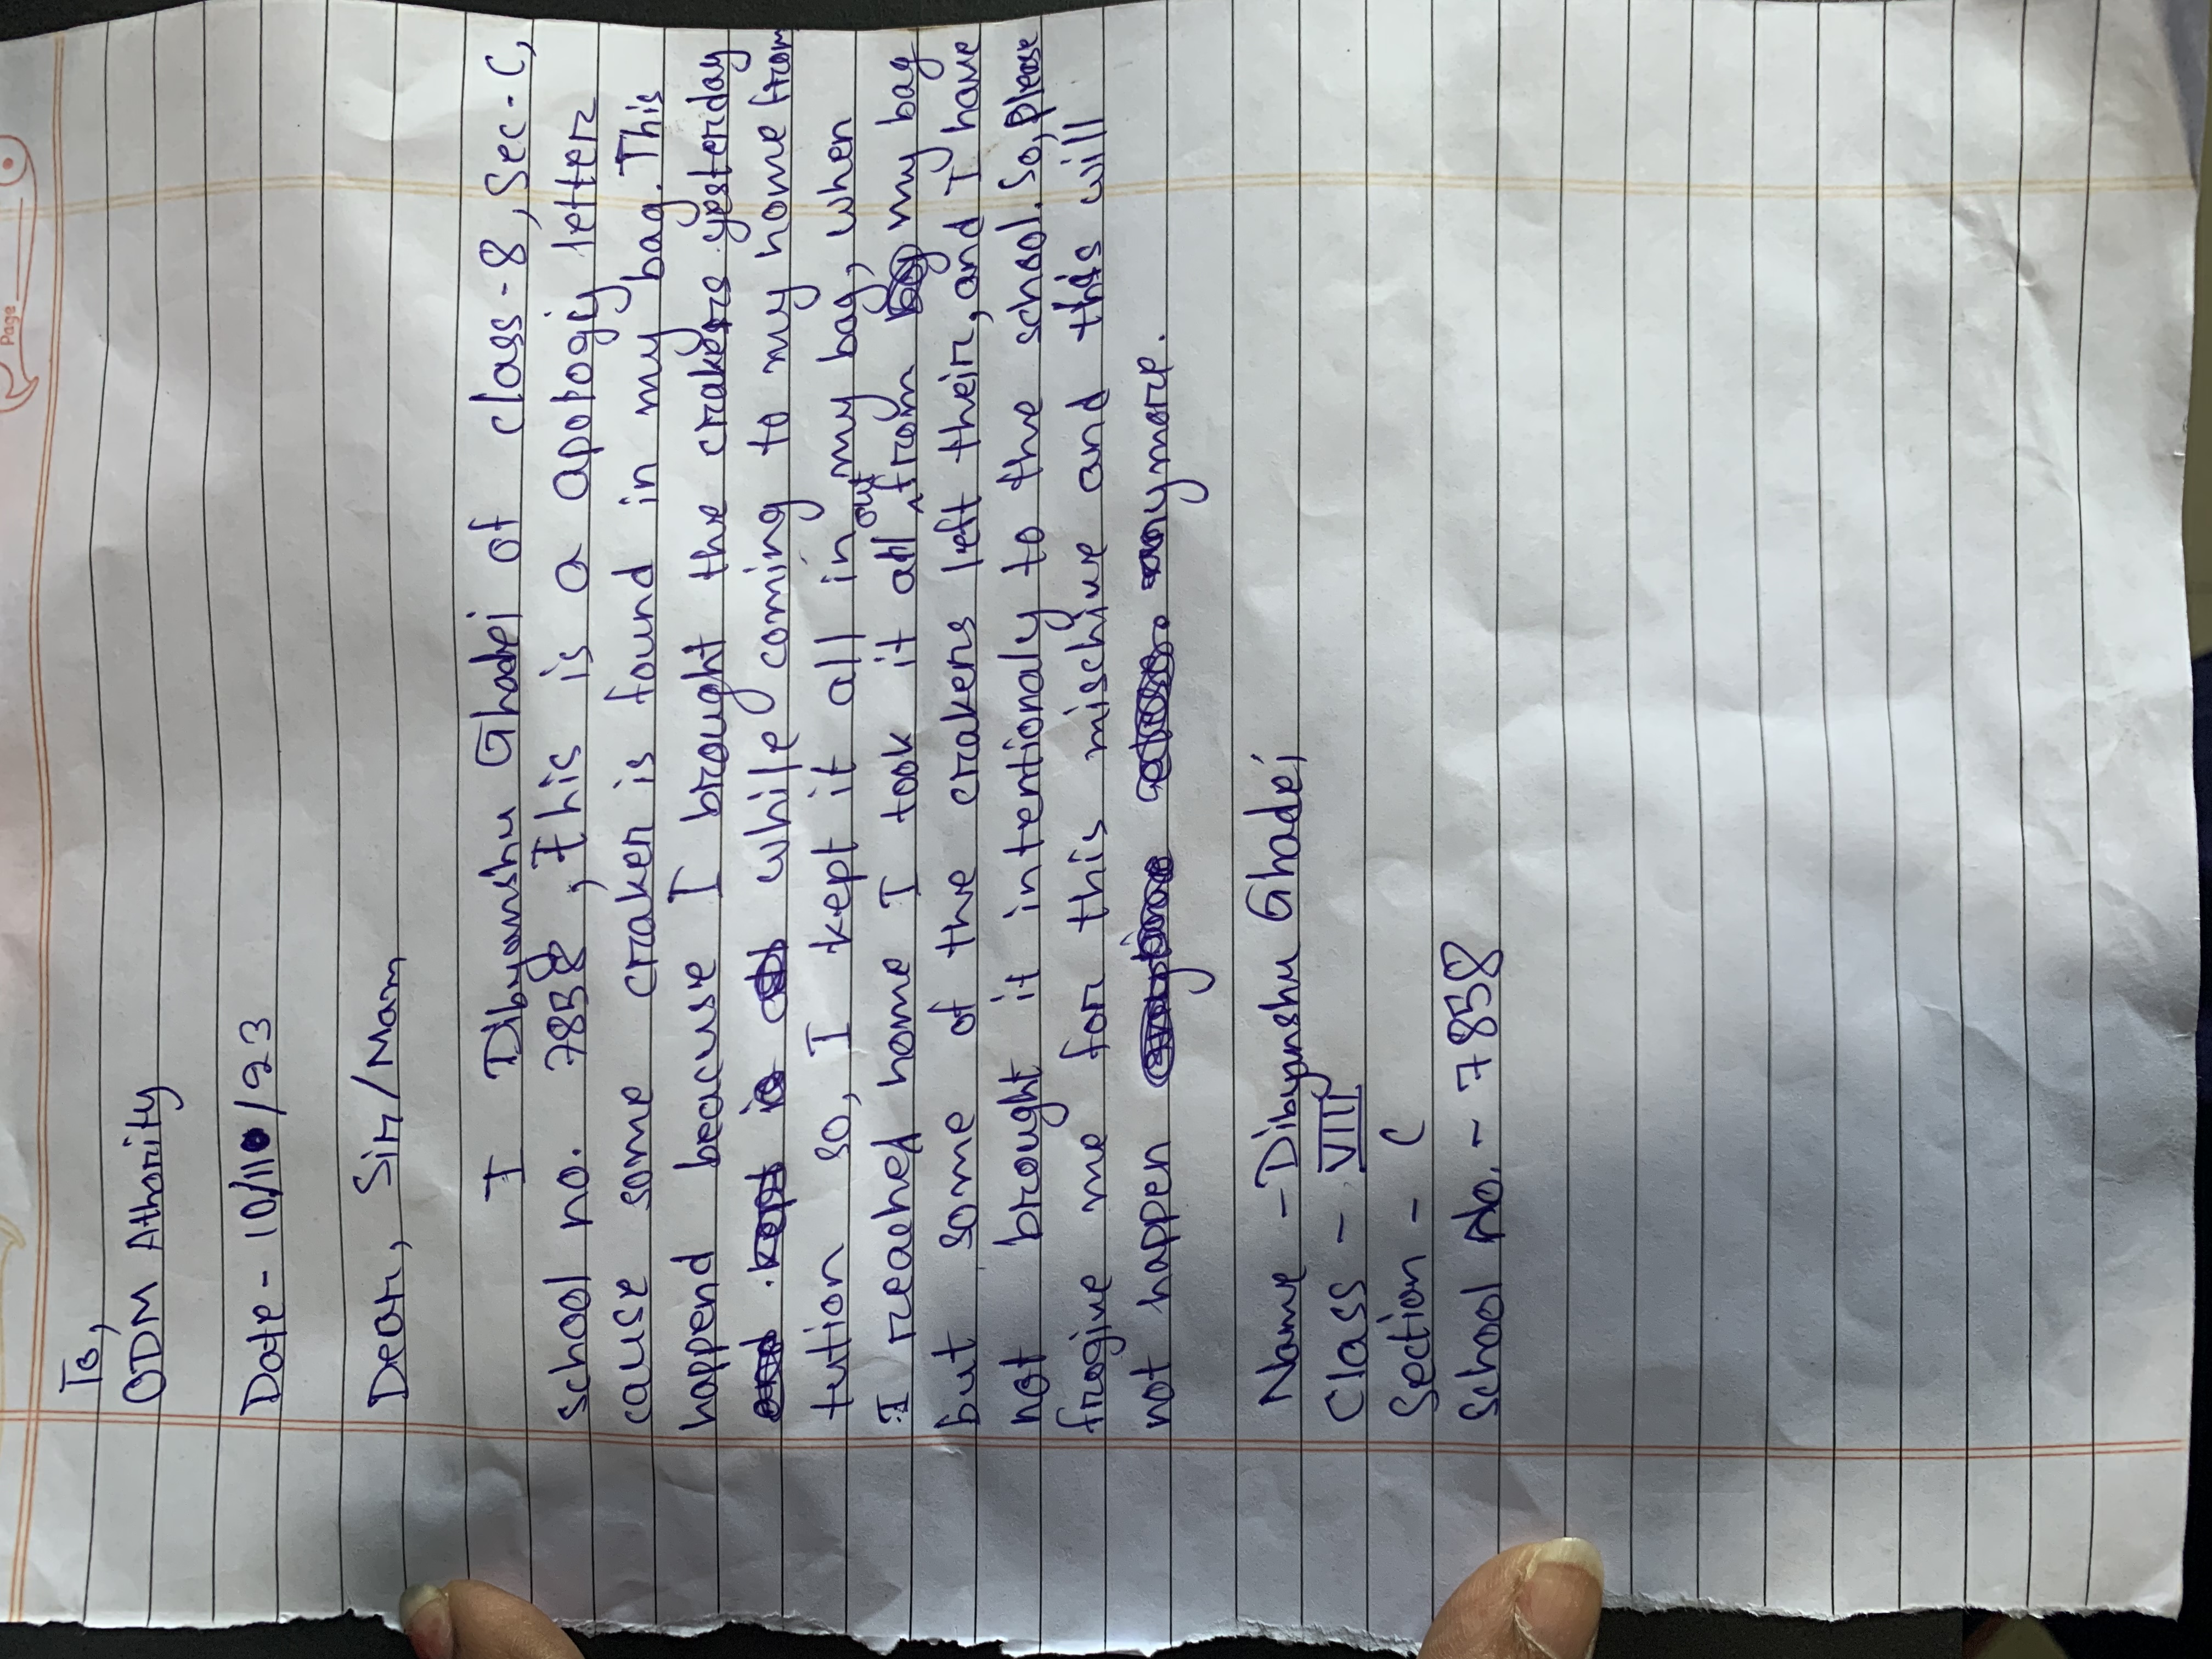 Page
To,
ODM Athority
Date - 10/11/23
Dear, Sir/Mam
I Dibyanshu Ghadei of class-8, Sec-C,
school no. 7858, This is a apology letter
cause some craker is found in my bag. This
happend because I brought the crakers yesterday
while coming to my home from
tution so, I kept it all in my bag, when
I reached home I took it all out from my bag
but some of the crakers left their, and I have
not brought it intentionaly to the school. So, please
frogive me for this mischive and this will
not happen anymore.
Name - Dibyanshu Ghadei
Class - VIII
Section - C
School No. - 7858